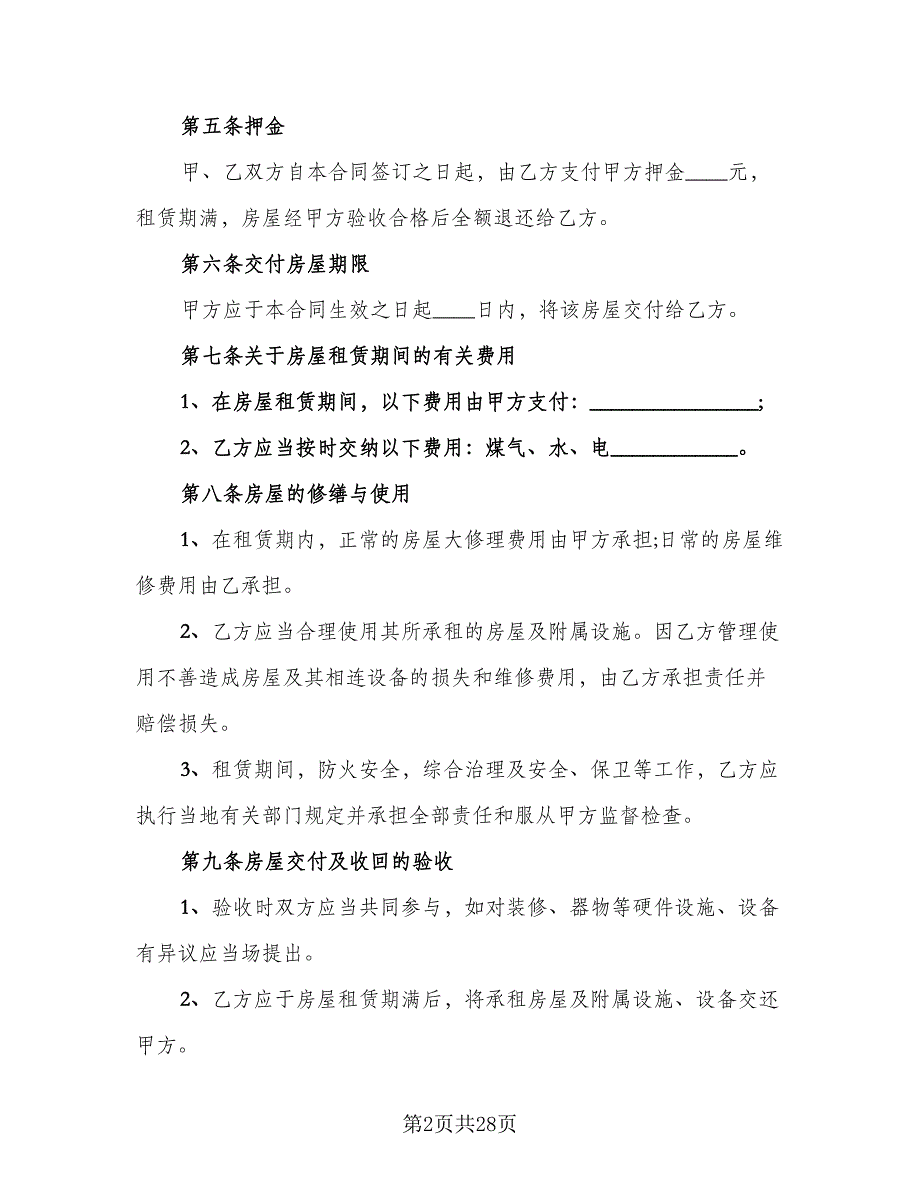 第五条押金
甲、乙双方自本合同签订之日起，由乙方支付甲方押金____元，
租赁期满，房屋经甲方验收合格后全额退还给乙方。
第六条交付房屋期限
甲方应于本合同生效之日起____日内，将该房屋交付给乙方。
第七条关于房屋租赁期间的有关费用
1、在房屋租赁期间，以下费用由甲方支付：________________;
2、乙方应当按时交纳以下费用：煤气、水、电____________。
第八条房屋的修缮与使用
1、在租赁期内，正常的房屋大修理费用由甲方承担;日常的房屋维
修费用由乙承担。
2、乙方应当合理使用其所承租的房屋及附属设施。因乙方管理使
用不善造成房屋及其相连设备的损失和维修费用，由乙方承担责任并
赔偿损失。
3、租赁期间，防火安全，综合治理及安全、保卫等工作，乙方应
执行当地有关部门规定并承担全部责任和服从甲方监督检查。
第九条房屋交付及收回的验收
1、验收时双方应当共同参与，如对装修、器物等硬件设施、设备
有异议应当场提出。
2、乙方应于房屋租赁期满后，将承租房屋及附属设施、设备交还
甲方。
第2页共28页